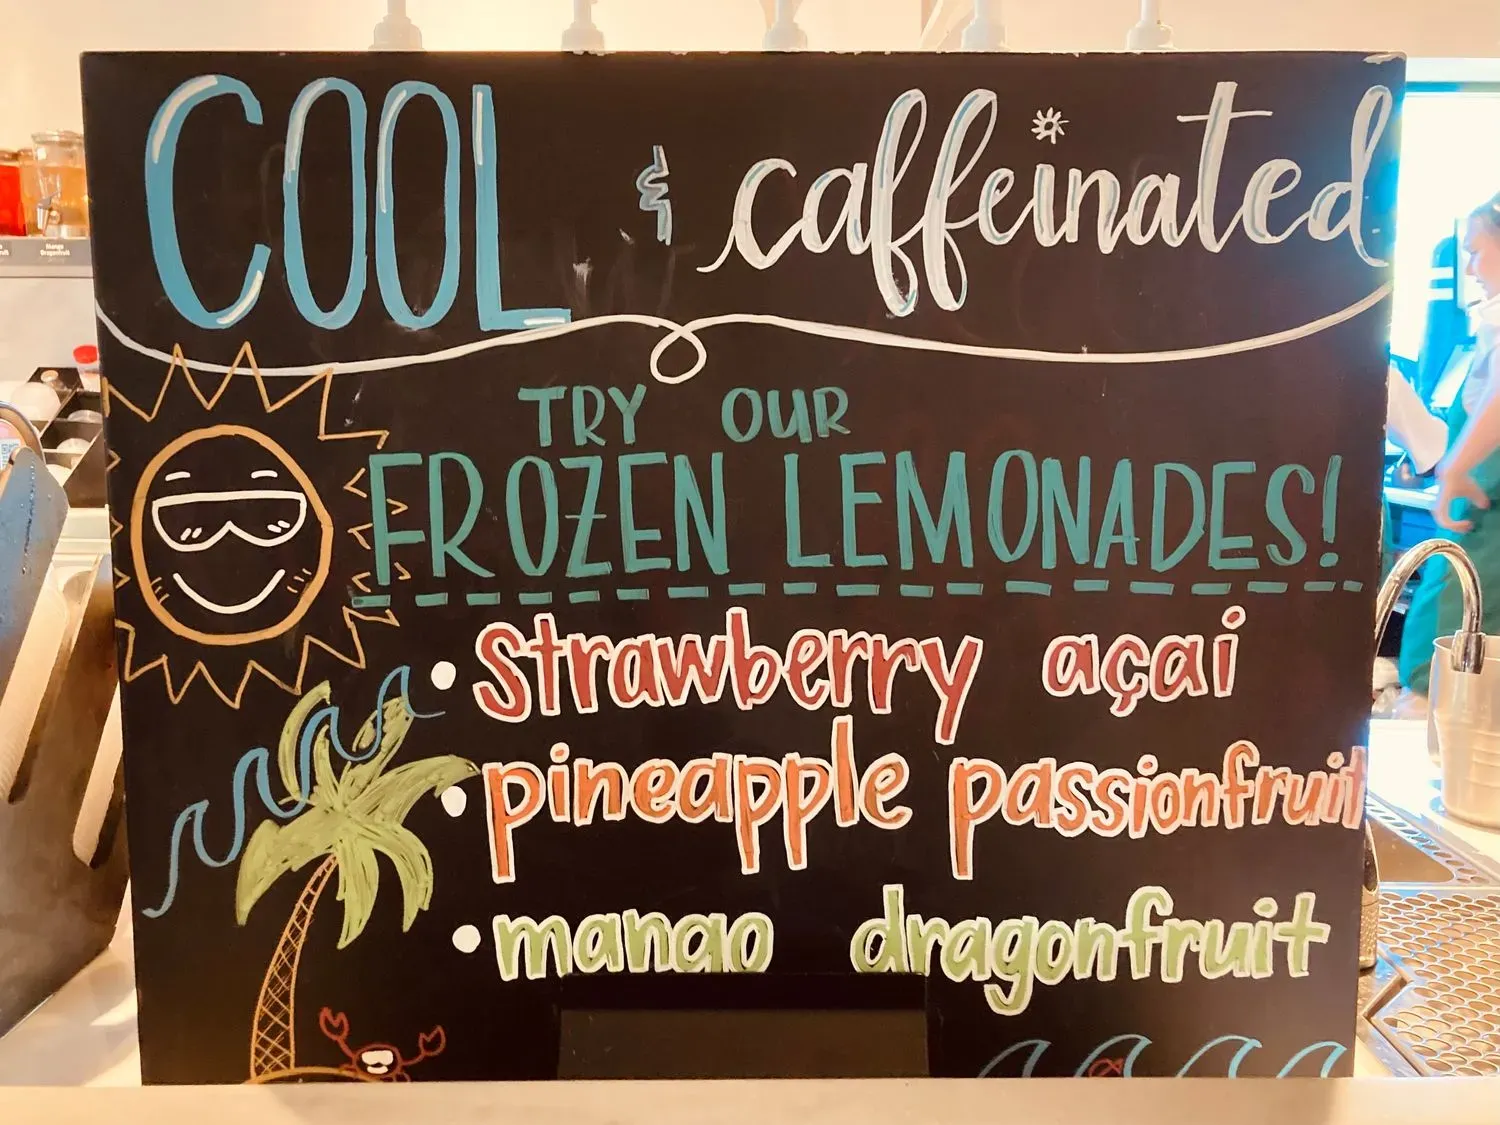 COOL & caffeinated
TRY OUR
FROZEN LEMONADES!
• strawberry açai
• pineapple passionfruit
• mango dragonfruit
Mango
Dragonfruit